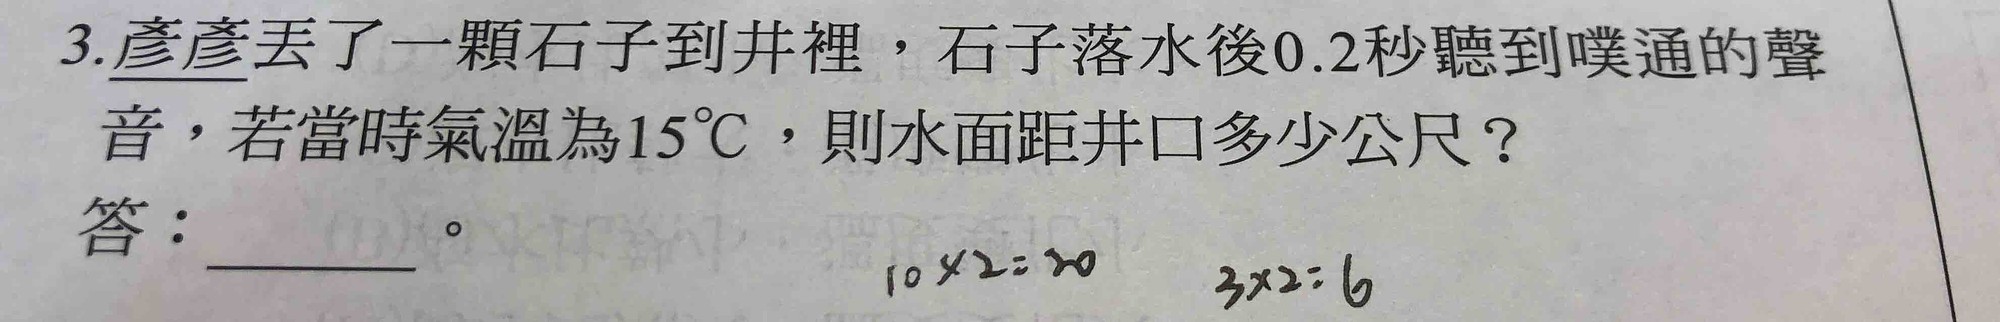 3.彥彥丟了一顆石子到井裡，石子落水後0.2秒聽到噗通的聲
音，若當時氣溫為15℃，則水面距井口多少公尺？
答：＿＿＿。
10×2=20 3×2=6